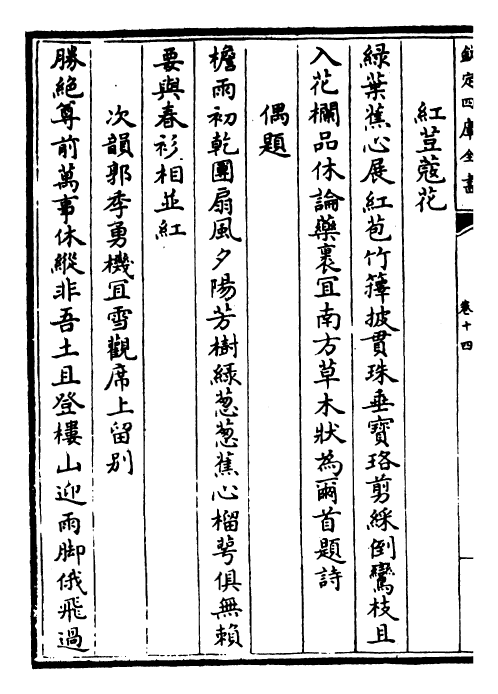 欽定四庫全書
卷十四
紅荳蔻花
綠葉蕉心展紅苞竹籜披貫珠垂寶珞剪綵倒鸞枝且
入花欄品休論藥裹冝南方草木狀為爾首題詩
偶題
檐雨初乾團扇風夕陽芳樹綠葱葱蕉心榴萼俱無賴
要與春衫相並紅
次韻郭季勇機冝雪觀席上留别
勝絶尊前萬事休縱非吾土且登樓山迎雨脚俄飛過